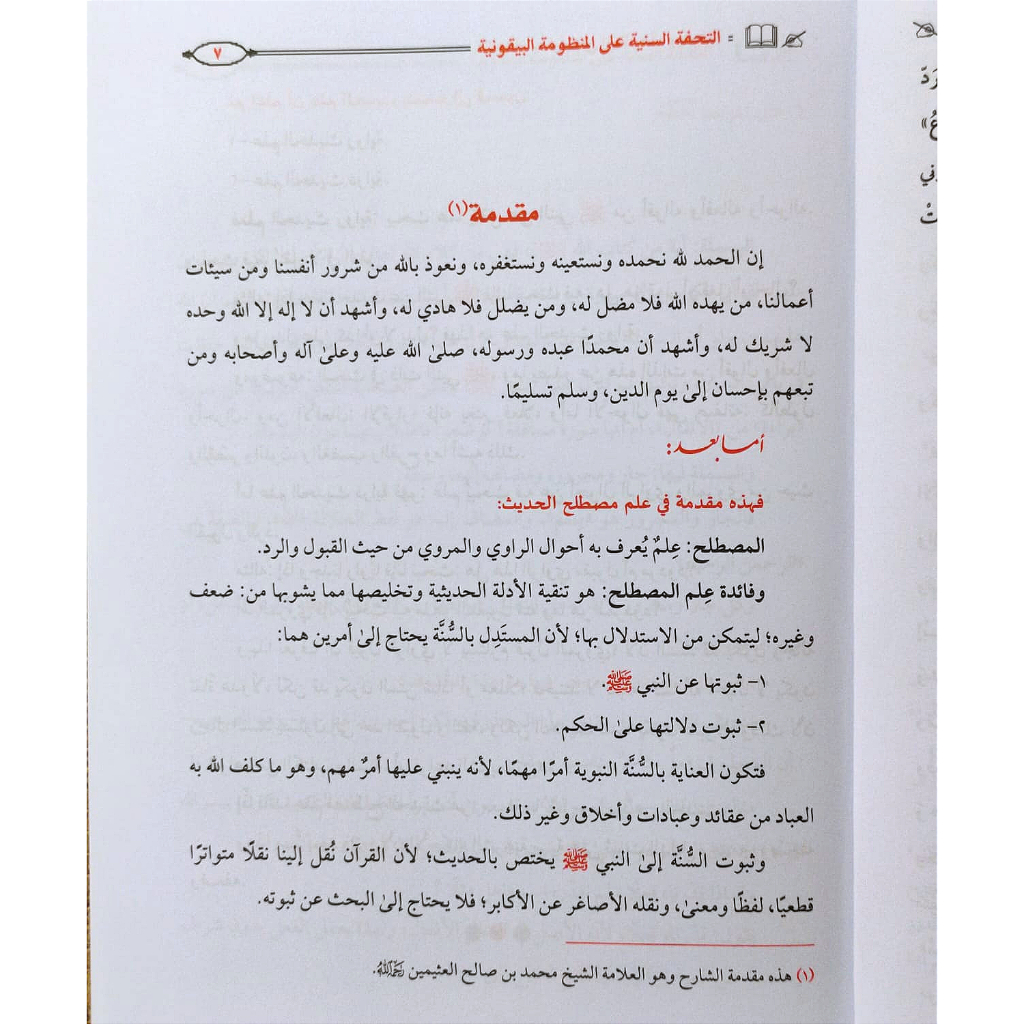 = التحفة السنية على المنظومة البيقونية
٧
مقدمة(١)
إن الحمد لله نحمده ونستعينه ونستغفره، ونعوذ بالله من شرور أنفسنا ومن سيئات
أعمالنا، من يهده الله فلا مضل له، ومن يضلل فلا هادي له، وأشهد أن لا إله إلا الله وحده
لا شريك له، وأشهد أن محمدًا عبده ورسوله، صلىٰ الله عليه وعلىٰ آله وأصحابه ومن
تبعهم بإحسان إلىٰ يوم الدين، وسلم تسليمًا.
أما بعد:
فهذه مقدمة في علم مصطلح الحديث:
المصطلح: عِلمٌ يُعرف به أحوال الراوي والمروي من حيث القبول والرد.
وفائدة عِلم المصطلح: هو تنقية الأدلة الحديثية وتخليصها مما يشوبها من: ضعف
وغيره؛ ليتمكن من الاستدلال بها؛ لأن المستَدِل بالسُّنَّة يحتاج إلىٰ أمرين هما:
١- ثبوتها عن النبي ﷺ.
٢- ثبوت دلالتها علىٰ الحكم.
فتكون العناية بالسُّنَّة النبوية أمرًا مهمًا، لأنه ينبني عليها أمرٌ مهم، وهو ما كلف الله به
العباد من عقائد وعبادات وأخلاق وغير ذلك.
وثبوت السُّنَّة إلىٰ النبي ﷺ يختص بالحديث؛ لأن القرآن نُقل إلينا نقلًا متواترًا
قطعيًا، لفظًا ومعنىٰ، ونقله الأصاغر عن الأكابر؛ فلا يحتاج إلىٰ البحث عن ثبوته.
(١) هذه مقدمة الشارح وهو العلامة الشيخ محمد بن صالح العثيمين رحمه الله.